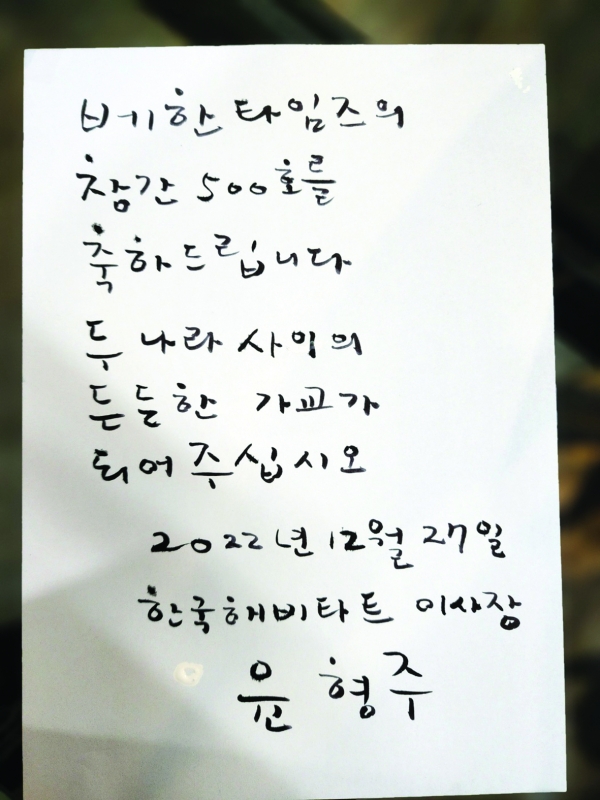 베한타임즈의
창간 500호를
축하드립니다
두 나라 사이의
든든한 가교가
되어 주십시오
2022년 12월 27일
한국해비타트 이사장
윤형주